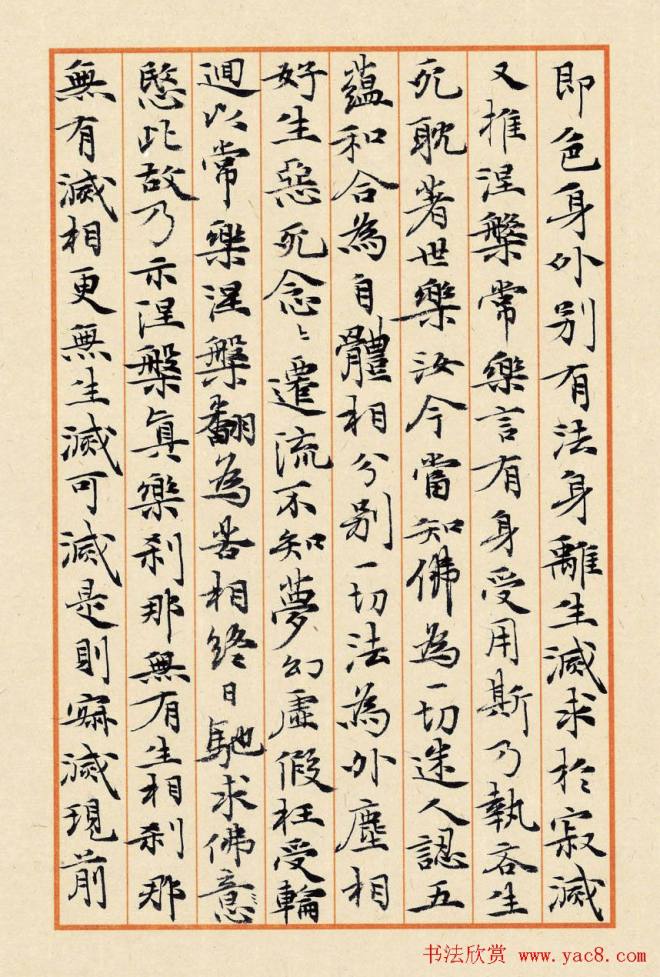 即色身外别有法身離生滅求於寂滅
又推涅槃常樂言有身受用斯乃執吝生
死耽著世樂汝今當知佛為一切迷人認五
蘊和合為自體相分别一切法為外塵相
好生惡死念〻遷流不知夢幻虛假枉受輪
迴以常樂涅槃翻為苦相終日馳求佛意
愍此故乃示涅槃真樂刹那無有生相刹那
無有滅相更無生滅可滅是則寂滅現前
书法欣赏 www.yac8.com